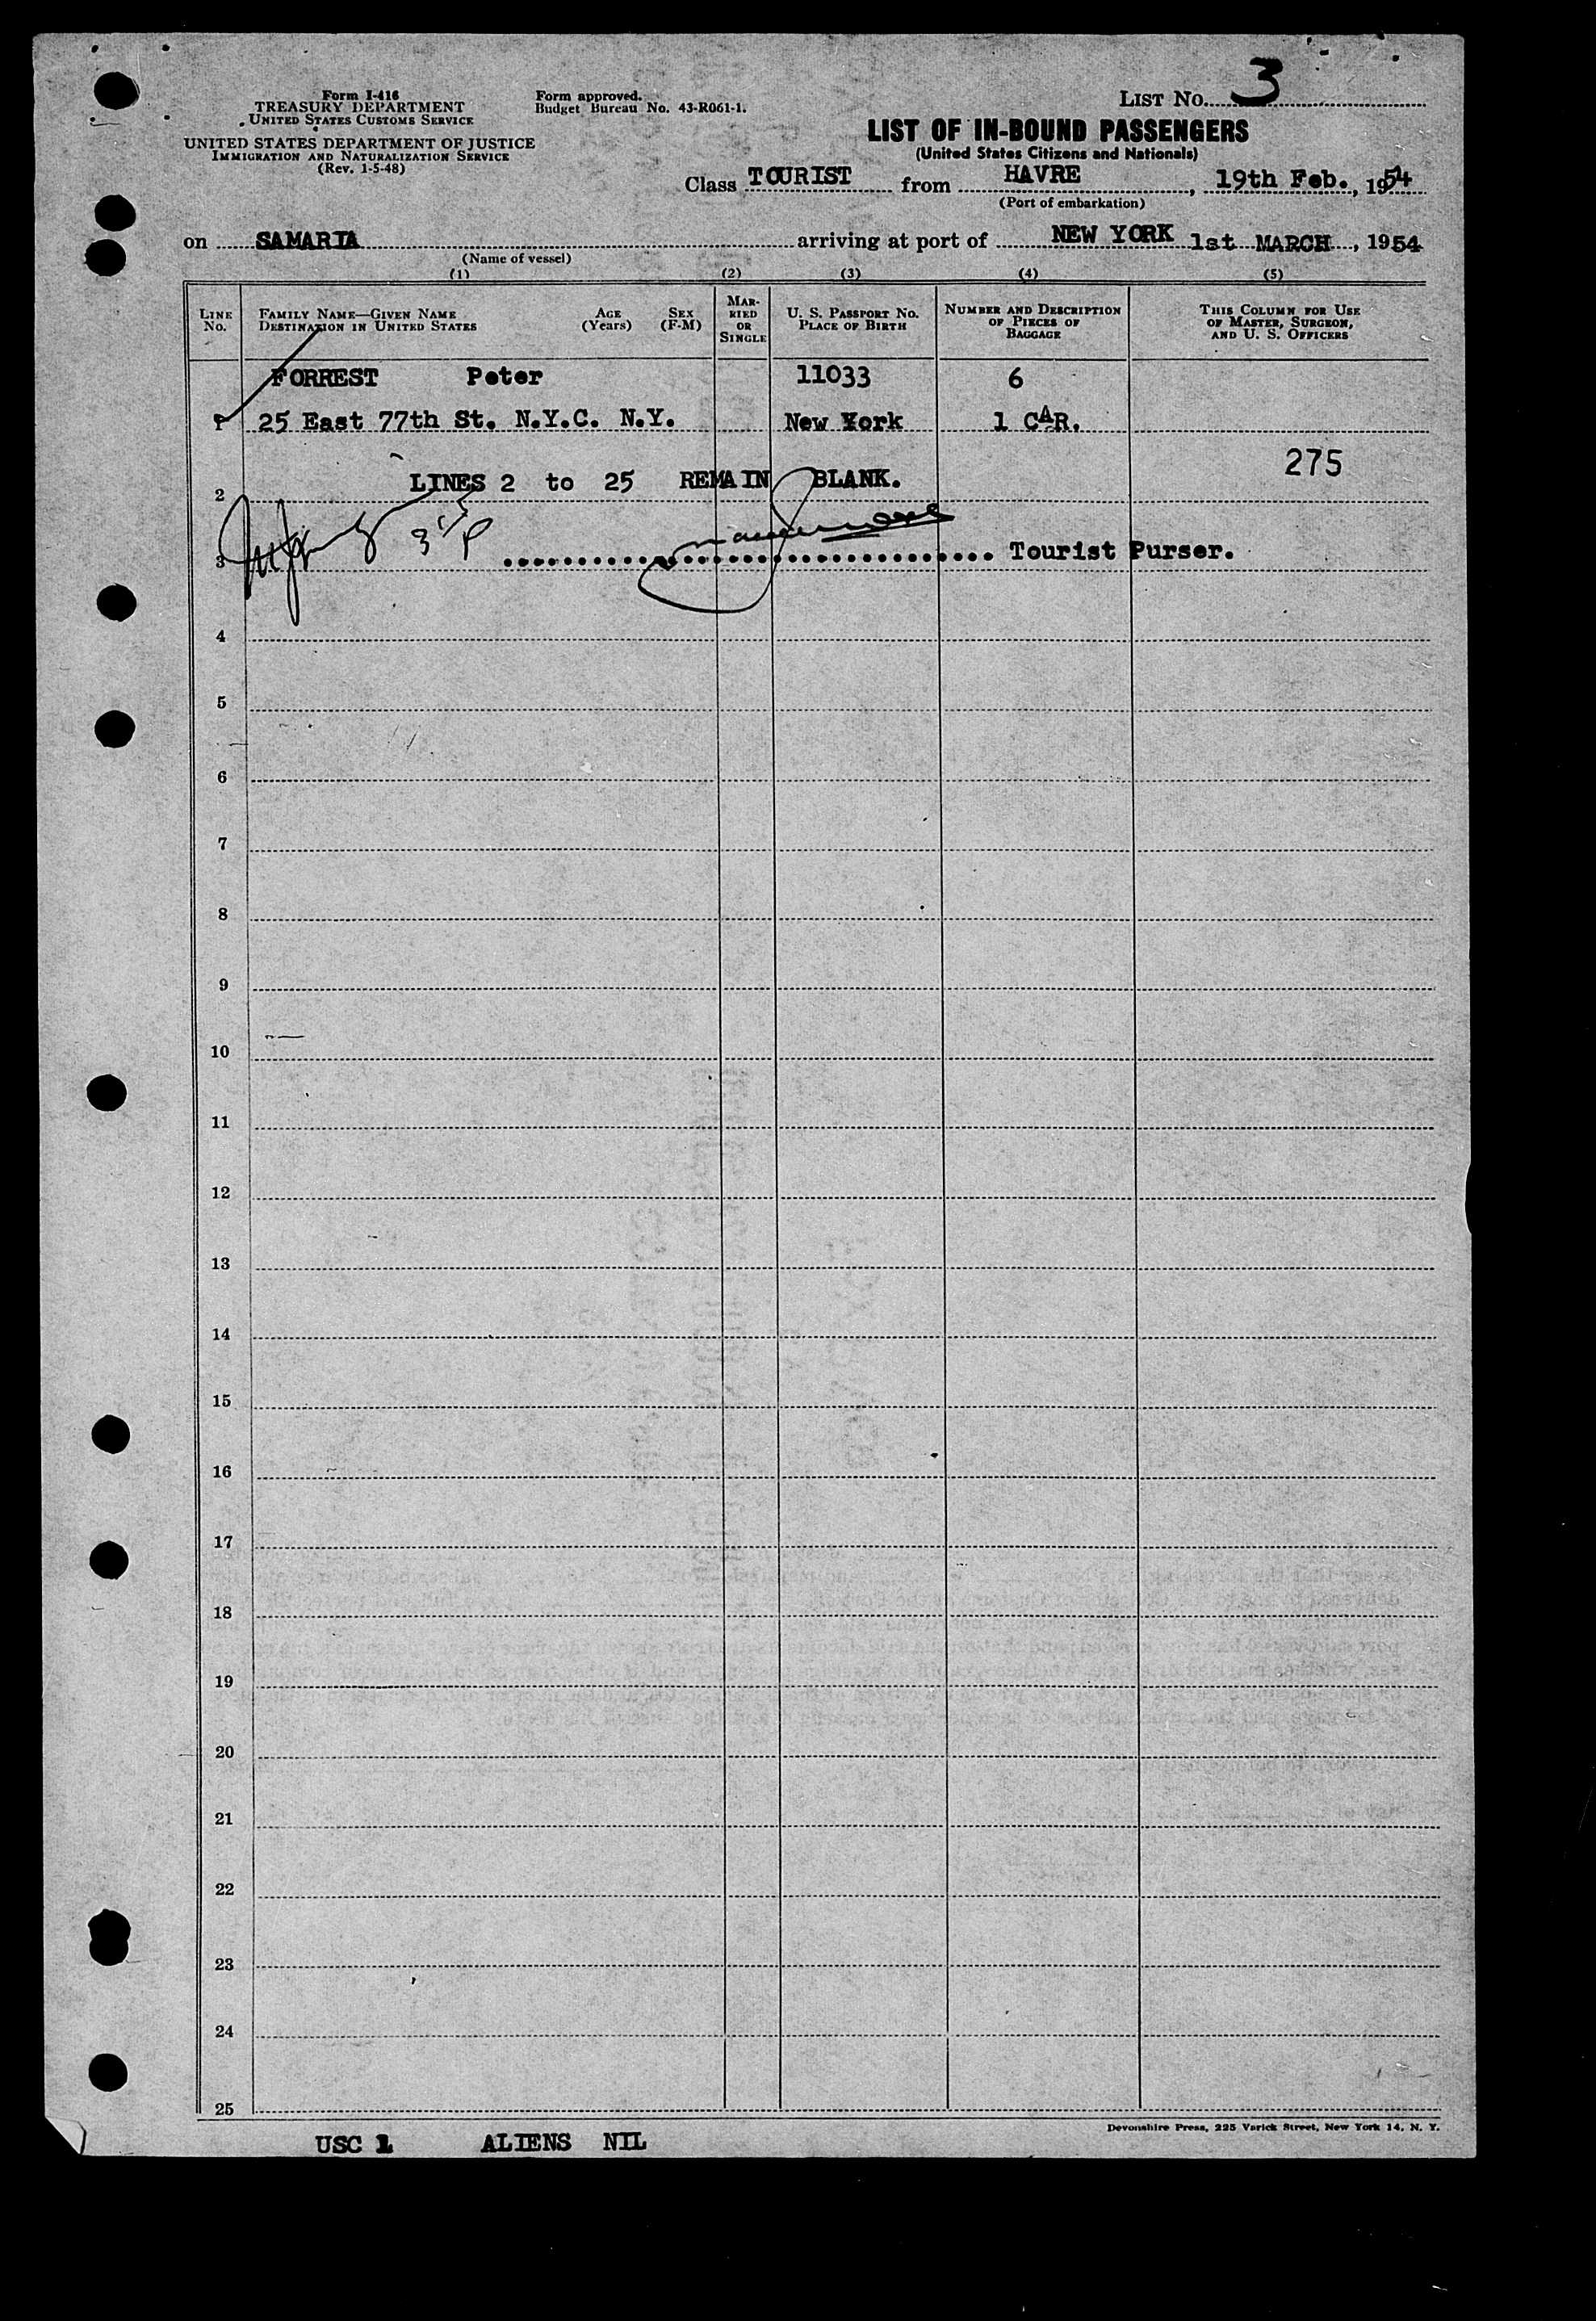 Form I-416
TREASURY DEPARTMENT
UNITED STATES CUSTOMS SERVICE
UNITED STATES DEPARTMENT OF JUSTICE
IMMIGRATION AND NATURALIZATION SERVICE
(Rev. 1-5-48)
Form approved.
Budget Bureau No. 43-R061-1.
LIST No. 3
LIST OF IN-BOUND PASSENGERS
(United States Citizens and Nationals)
Class TOURIST from HAVRE, 19th Feb., 1954
(Port of embarkation)
on SAMARIA arriving at port of NEW YORK 1st MARCH, 1954
(Name of vessel)
(1) (2) (3) (4) (5)
LINE No.
FAMILY NAME—GIVEN NAME
DESTINATION IN UNITED STATES
AGE (Years)
SEX (F-M)
MARRIED OR SINGLE
U. S. PASSPORT NO.
PLACE OF BIRTH
NUMBER AND DESCRIPTION OF PIECES OF BAGGAGE
THIS COLUMN FOR USE OF MASTER, SURGEON, AND U. S. OFFICERS
FORREST Peter 11033 6
1 25 East 77th St. N.Y.C. N.Y. New York 1 CAR.
275
2 LINES 2 to 25 REMAIN BLANK.
3 Tourist Purser.
4
5
6
7
8
9
10
11
12
13
14
15
16
17
18
19
20
21
22
23
24
25
Devonshire Press, 225 Varick Street, New York 14, N. Y.
USC 1 ALIENS NIL